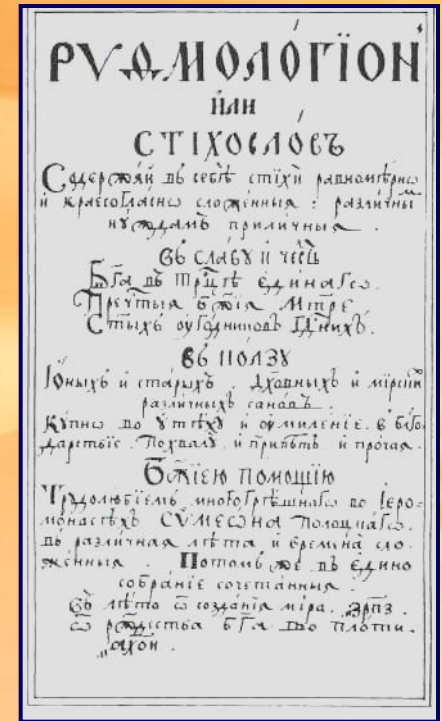 РѴѲМОЛО́ГЇОН
и҆лѝ
СТІХОСЛОВЪ
Содержѧй въ себѣ стїхѝ равномѣрнѡ
и҆ краесогласнѡ сложенныѧ : различны̑м
нꙋждамъ приличныѧ .
Въ славꙋ и҆ че́сть
Бг҃а въ Трⷪ҇цѣ є҆динагѡ .
Преч҃тыѧ Бж҃їѧ Мт҃ре
Ст҃ыхъ оу҆годниковъ Гдⷭ҇нихъ .
Въ ползꙋ
Ю҆ныхъ и҆ старыхъ . Дх҃овныхъ и҆ мірски́х
различныхъ санѡвъ .
Кꙋпнѡ во оу҆тѣхꙋ и҆ оу҆миленїе . в благо
дарствїе . Похвалꙋ и҆ привѣтъ и҆ прочаѧ .
Бж҃їею помощїю
Трꙋдолюбїемъ многогрѣшнагѡ во І҆еро-
монасѣхъ СѴМЕѠ́НА Полоцкагѡ .
въ различнаѧ лѣта и҆ времена̀ сло-
женныѧ . Потомъ же въ є҆дино
собранїе сочетанныѧ .
Въ лѣто ѿ созданїѧ міра . ҂зрп҃з .
ѿ рождества Бг҃а во плоти .
҂ахо҃и .